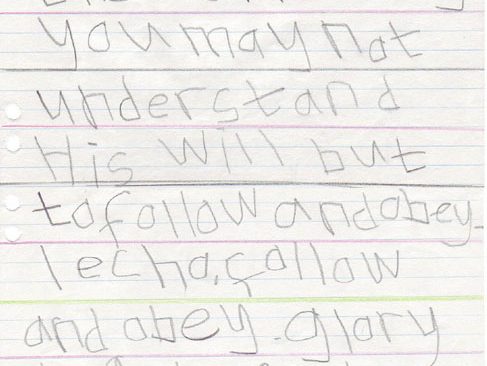 you may not
understand
His will but
to follow and obey.
lecha, follow
and obey. glory